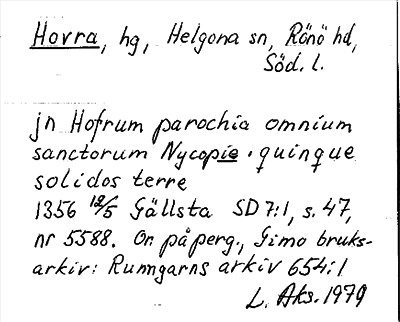 Hovra, hg, Helgona sn, Rönö hd,
Söd. l.
jn Hofrum parochia omnium
sanctorum Nycopie · quinque
solidos terre
1356 12/5 Gällsta SD 7:1, s. 47,
nr 5588. Or. på perg., Gimo bruks-
arkiv: Rumngarns arkiv 654:1
L. Aks. 1979